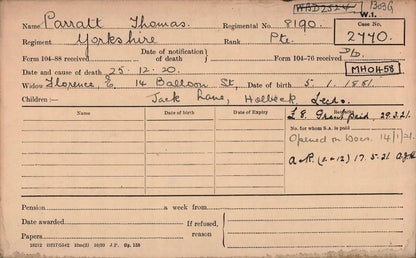 W8D2524 1303G
W.1.
Name Parratt Thomas. Regimental No. 8190. Case No. 2770.
Regiment Yorkshire Rank Pte.
Form 104-88 received Date of notification of death Form 104-76 received D/D.
MH04458
Date and cause of death 25. 12. 20.
Widow Florence, E. 14 Balloon St, Date of birth 5. 1. 1881.
Children :— Jack Lane, Holbeck, Leeds.
Name Date of birth Date of Expiry
Grant paid, 29.3.21.
No. for whom S.A. is paid
Opened on Docs. 14/1/21.
17.5.21
Pension a week from
Date awarded If refused,
Papers reason